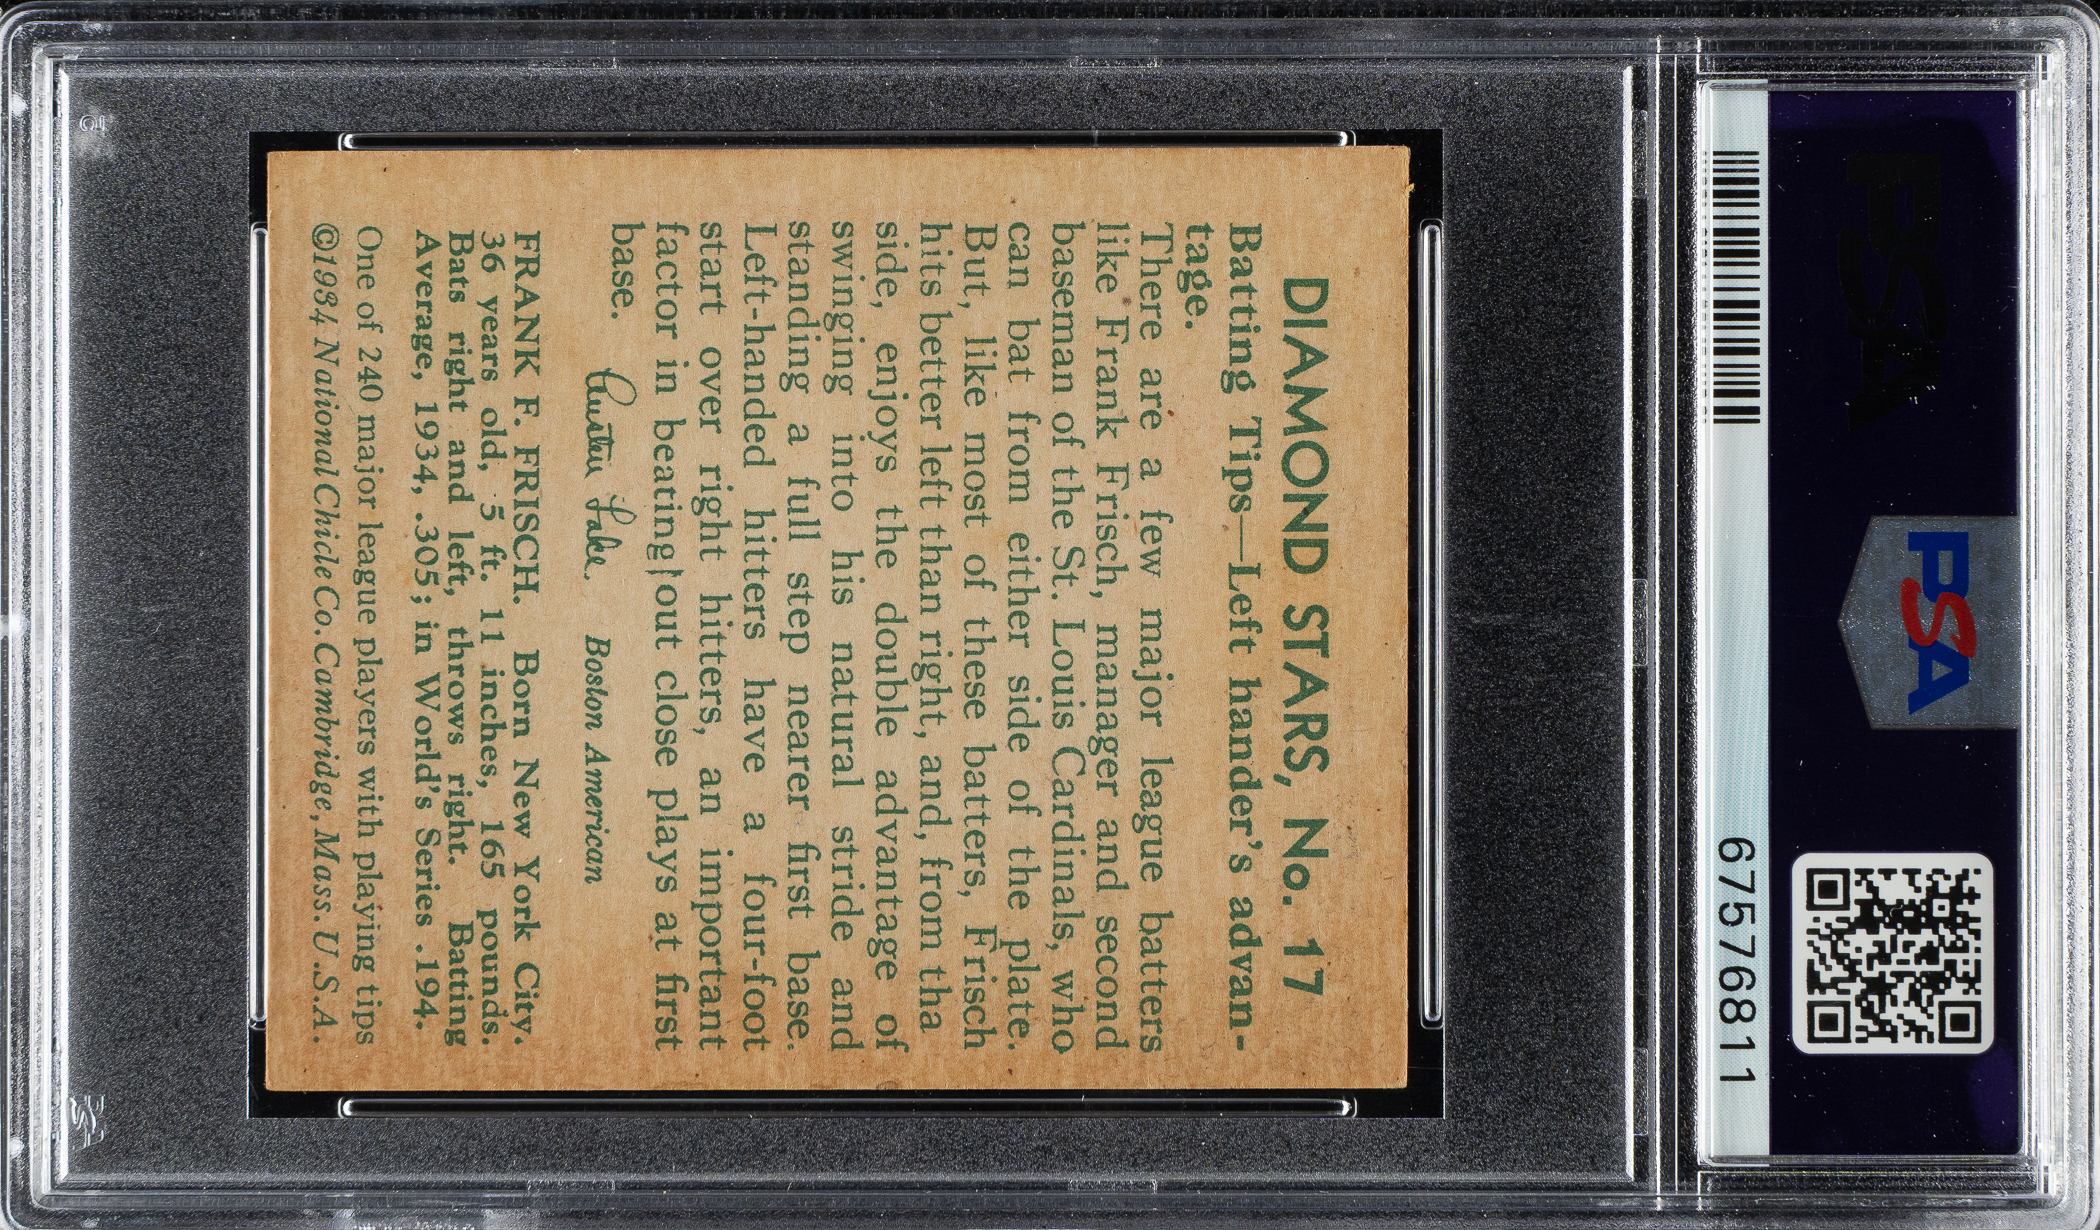 PSA
PSA
67576811
DIAMOND STARS, No. 17
Batting Tips—Left hander's advan-
tage.
There are a few major league batters
like Frank Frisch, manager and second
baseman of the St. Louis Cardinals, who
can bat from either side of the plate.
But, like most of these batters, Frisch
hits better left than right, and, from tha
side, enjoys the double advantage of
swinging into his natural stride and
standing a full step nearer first base.
Left-handed hitters have a four-foot
start over right hitters, an important
factor in beating out close plays at first
base.
Austen Lake. Boston American
FRANK F. FRISCH. Born New York City.
36 years old, 5 ft. 11 inches, 165 pounds.
Bats right and left, throws right. Batting
Average, 1934, .305; in World's Series .194.
One of 240 major league players with playing tips
©1934 National Chicle Co. Cambridge, Mass. U.S.A.